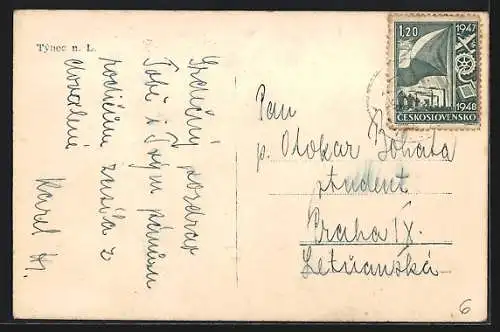 Týnec n. L.
Srdečný pozdrav
Tobě i Tvým pánům
rodičům zasílá z
Karel
Pan
p. Otokar Bohata
student
Praha IX.
Letňanská
1.20
1947
1948
ČESKOSLOVENSKO
6